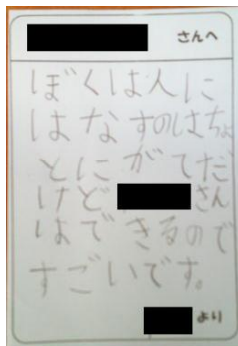 さんへ
ぼくは人に
はなすのはちょ
とにがてだ
けどさん
はできるので
すごいです。
より